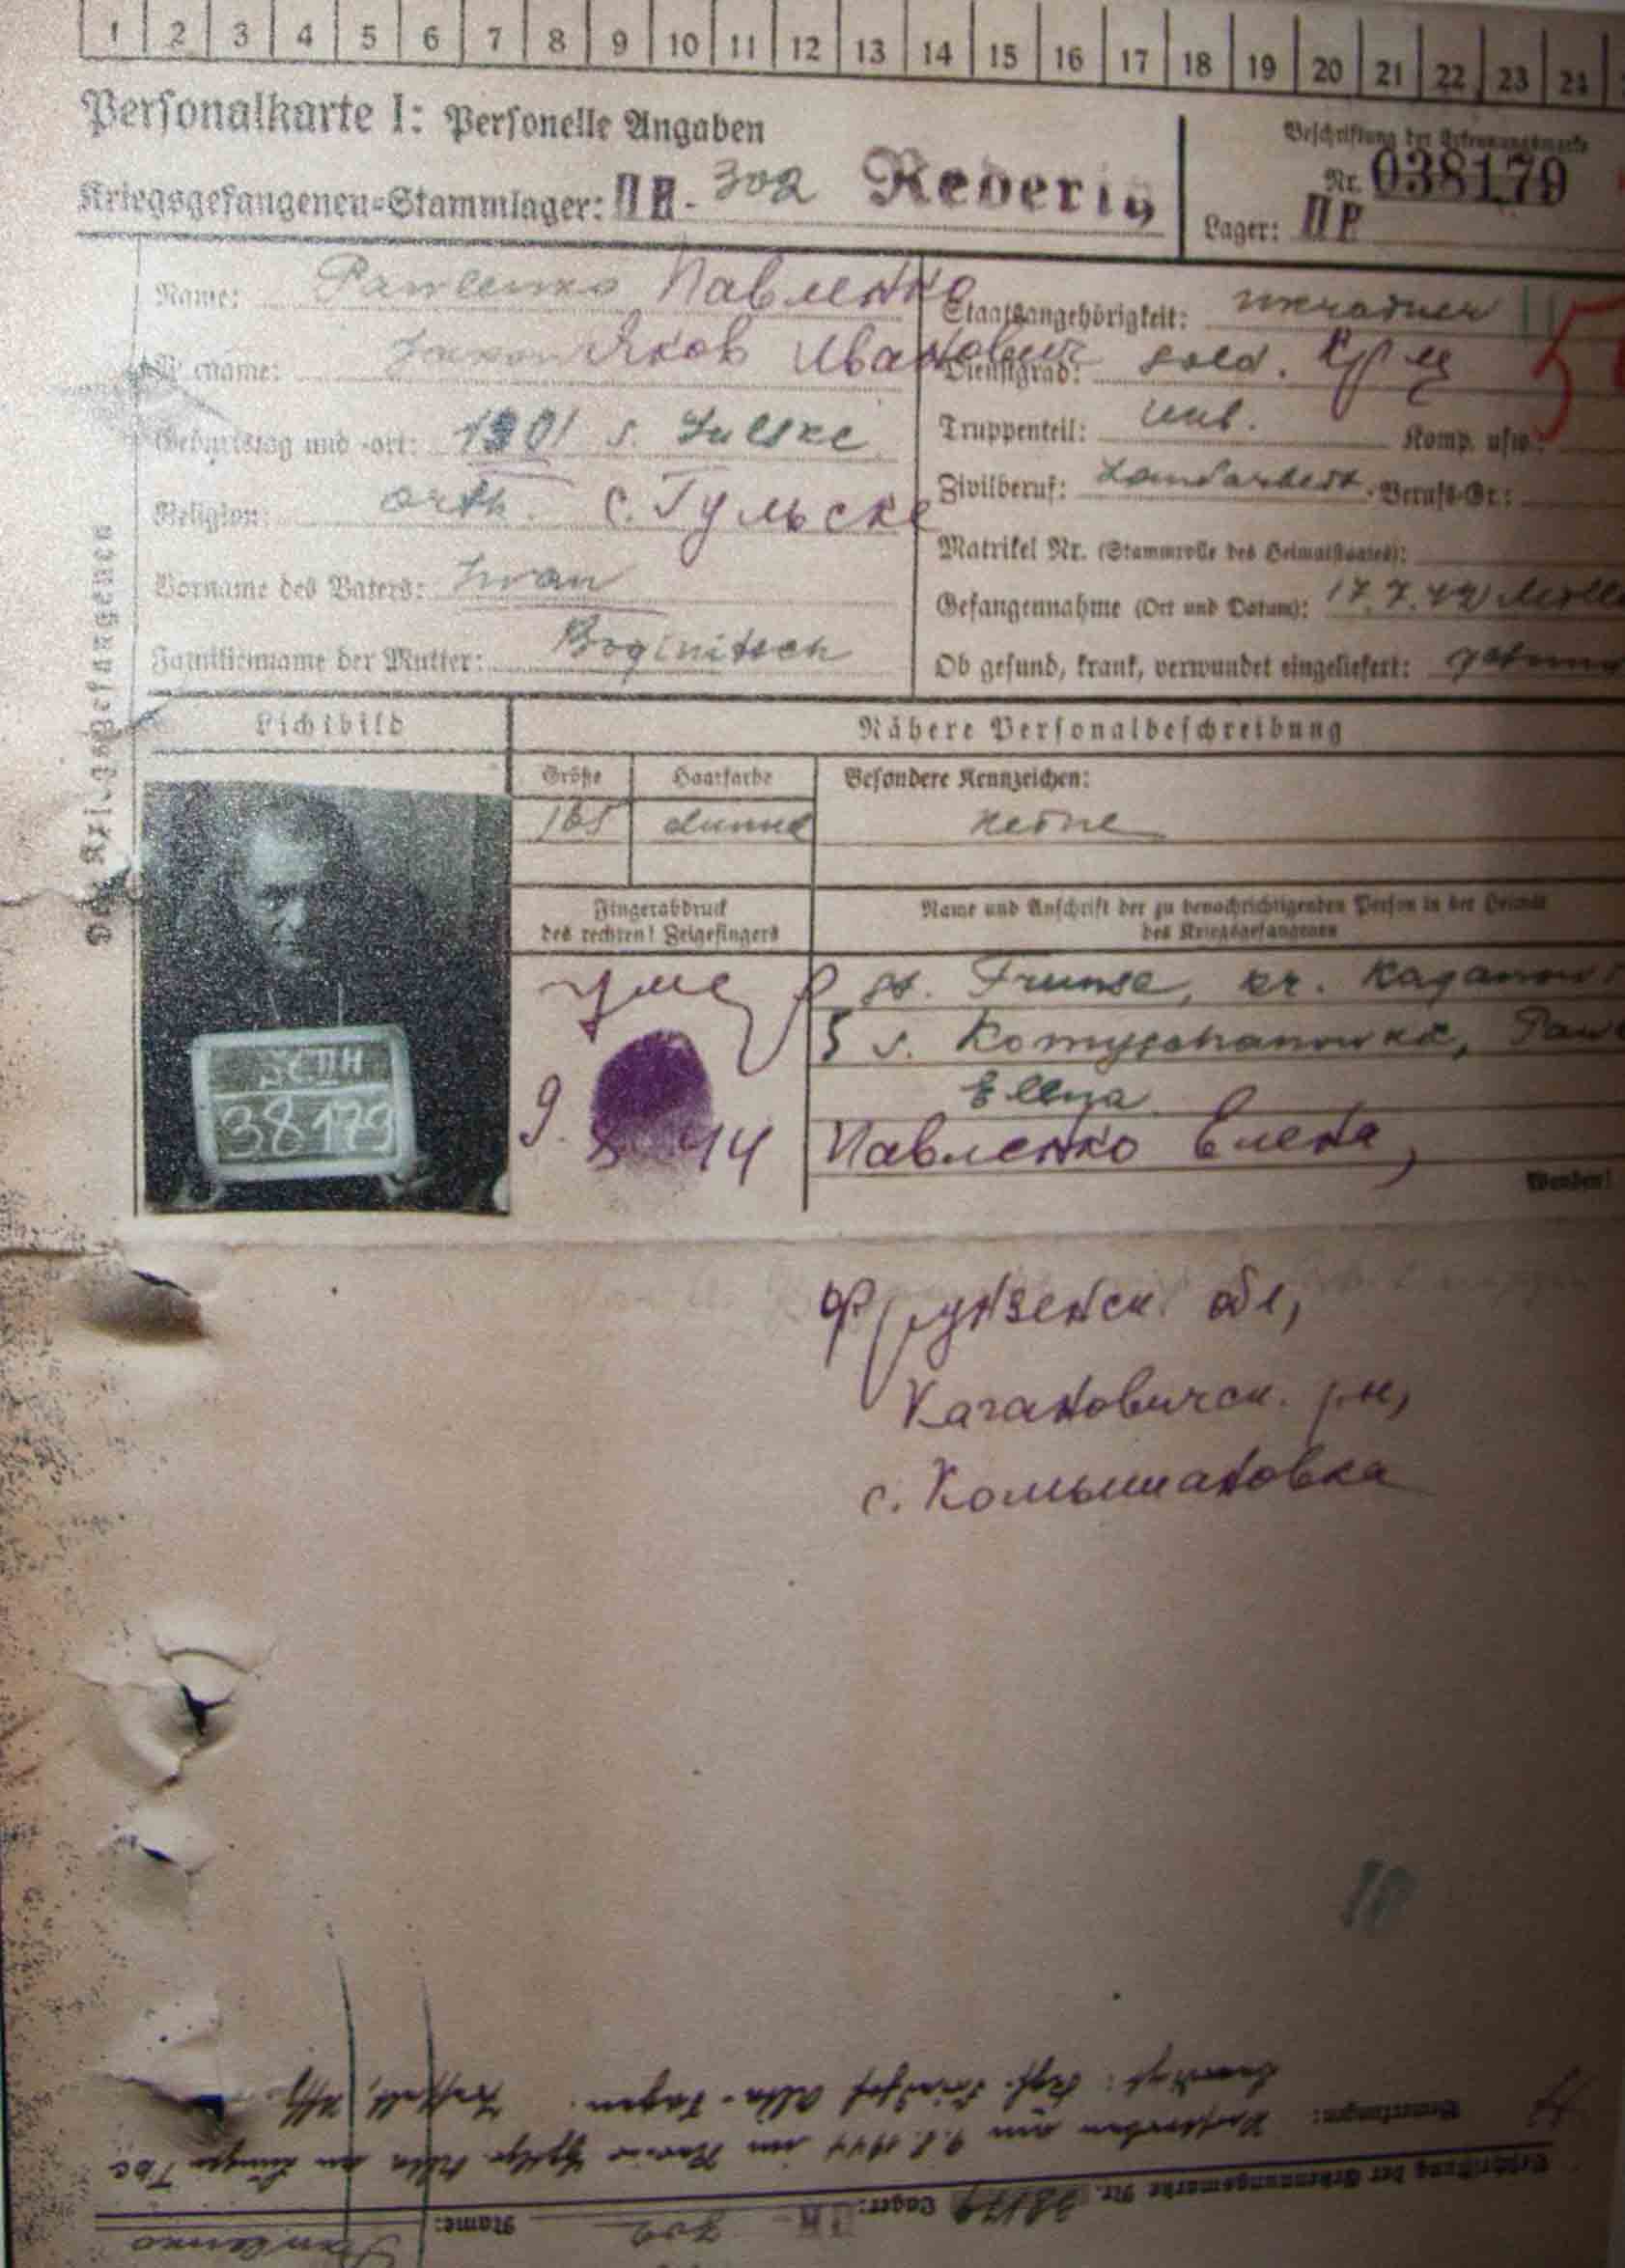 1 2 3 4 5 6 7 8 9 10 11 12 13 14 15 16 17 18 19 20 21 22 23 24
Personalkarte I: Personelle Angaben
Kriegsgefangenen-Stammlager: II H - 302 Rederitz
Beschriftung der Erkennungsmarke
Nr. 038179
Lager: II H
Des Kriegsgefangenen
Name: Pawlenko Павленко
Vorname: Яков Иванович
Geburtstag und -ort: 1901 s. Gulske
Religion: orth. с. Гульске
Vorname des Vaters: Iwan
Familienname der Mutter: Boginitsch
Staatsangehörigkeit: Ukrainer
Dienstgrad: sold.
Truppenteil: Komp. usw.:
Zivilberuf: Landarbeit. Berufs-Gr.:
Matrikel Nr. (Stammrolle des Heimatstaates):
Gefangennahme (Ort und Datum): 17.7.42
Ob gesund, krank, verwundet eingeliefert: gesund
Lichtbild
Nähere Personalbeschreibung
Größe Haarfarbe Besondere Kennzeichen:
165 dunkel keine
Fingerabdruck
des rechten! Zeigefingers
Name und Anschrift der zu benachrichtigenden Person in der Heimat
des Kriegsgefangenen
38179
умер
9. 8 44
gb. Frunse, kr. Kaganow
s. Komyschanowka, Paw
Elena
Павленко Елена,
Wenden!
Фрунзенск. обл,
Кагановичск. р-н,
с. Комышановка
18
Name: Pawlenko
302
Beschriftung der Erkennungsmarke Nr. 38179 Lager: II H
Bemerkungen: Verstorben am 9.8.1944 im Alta an Lungen Tbc
Friedhof Alta-